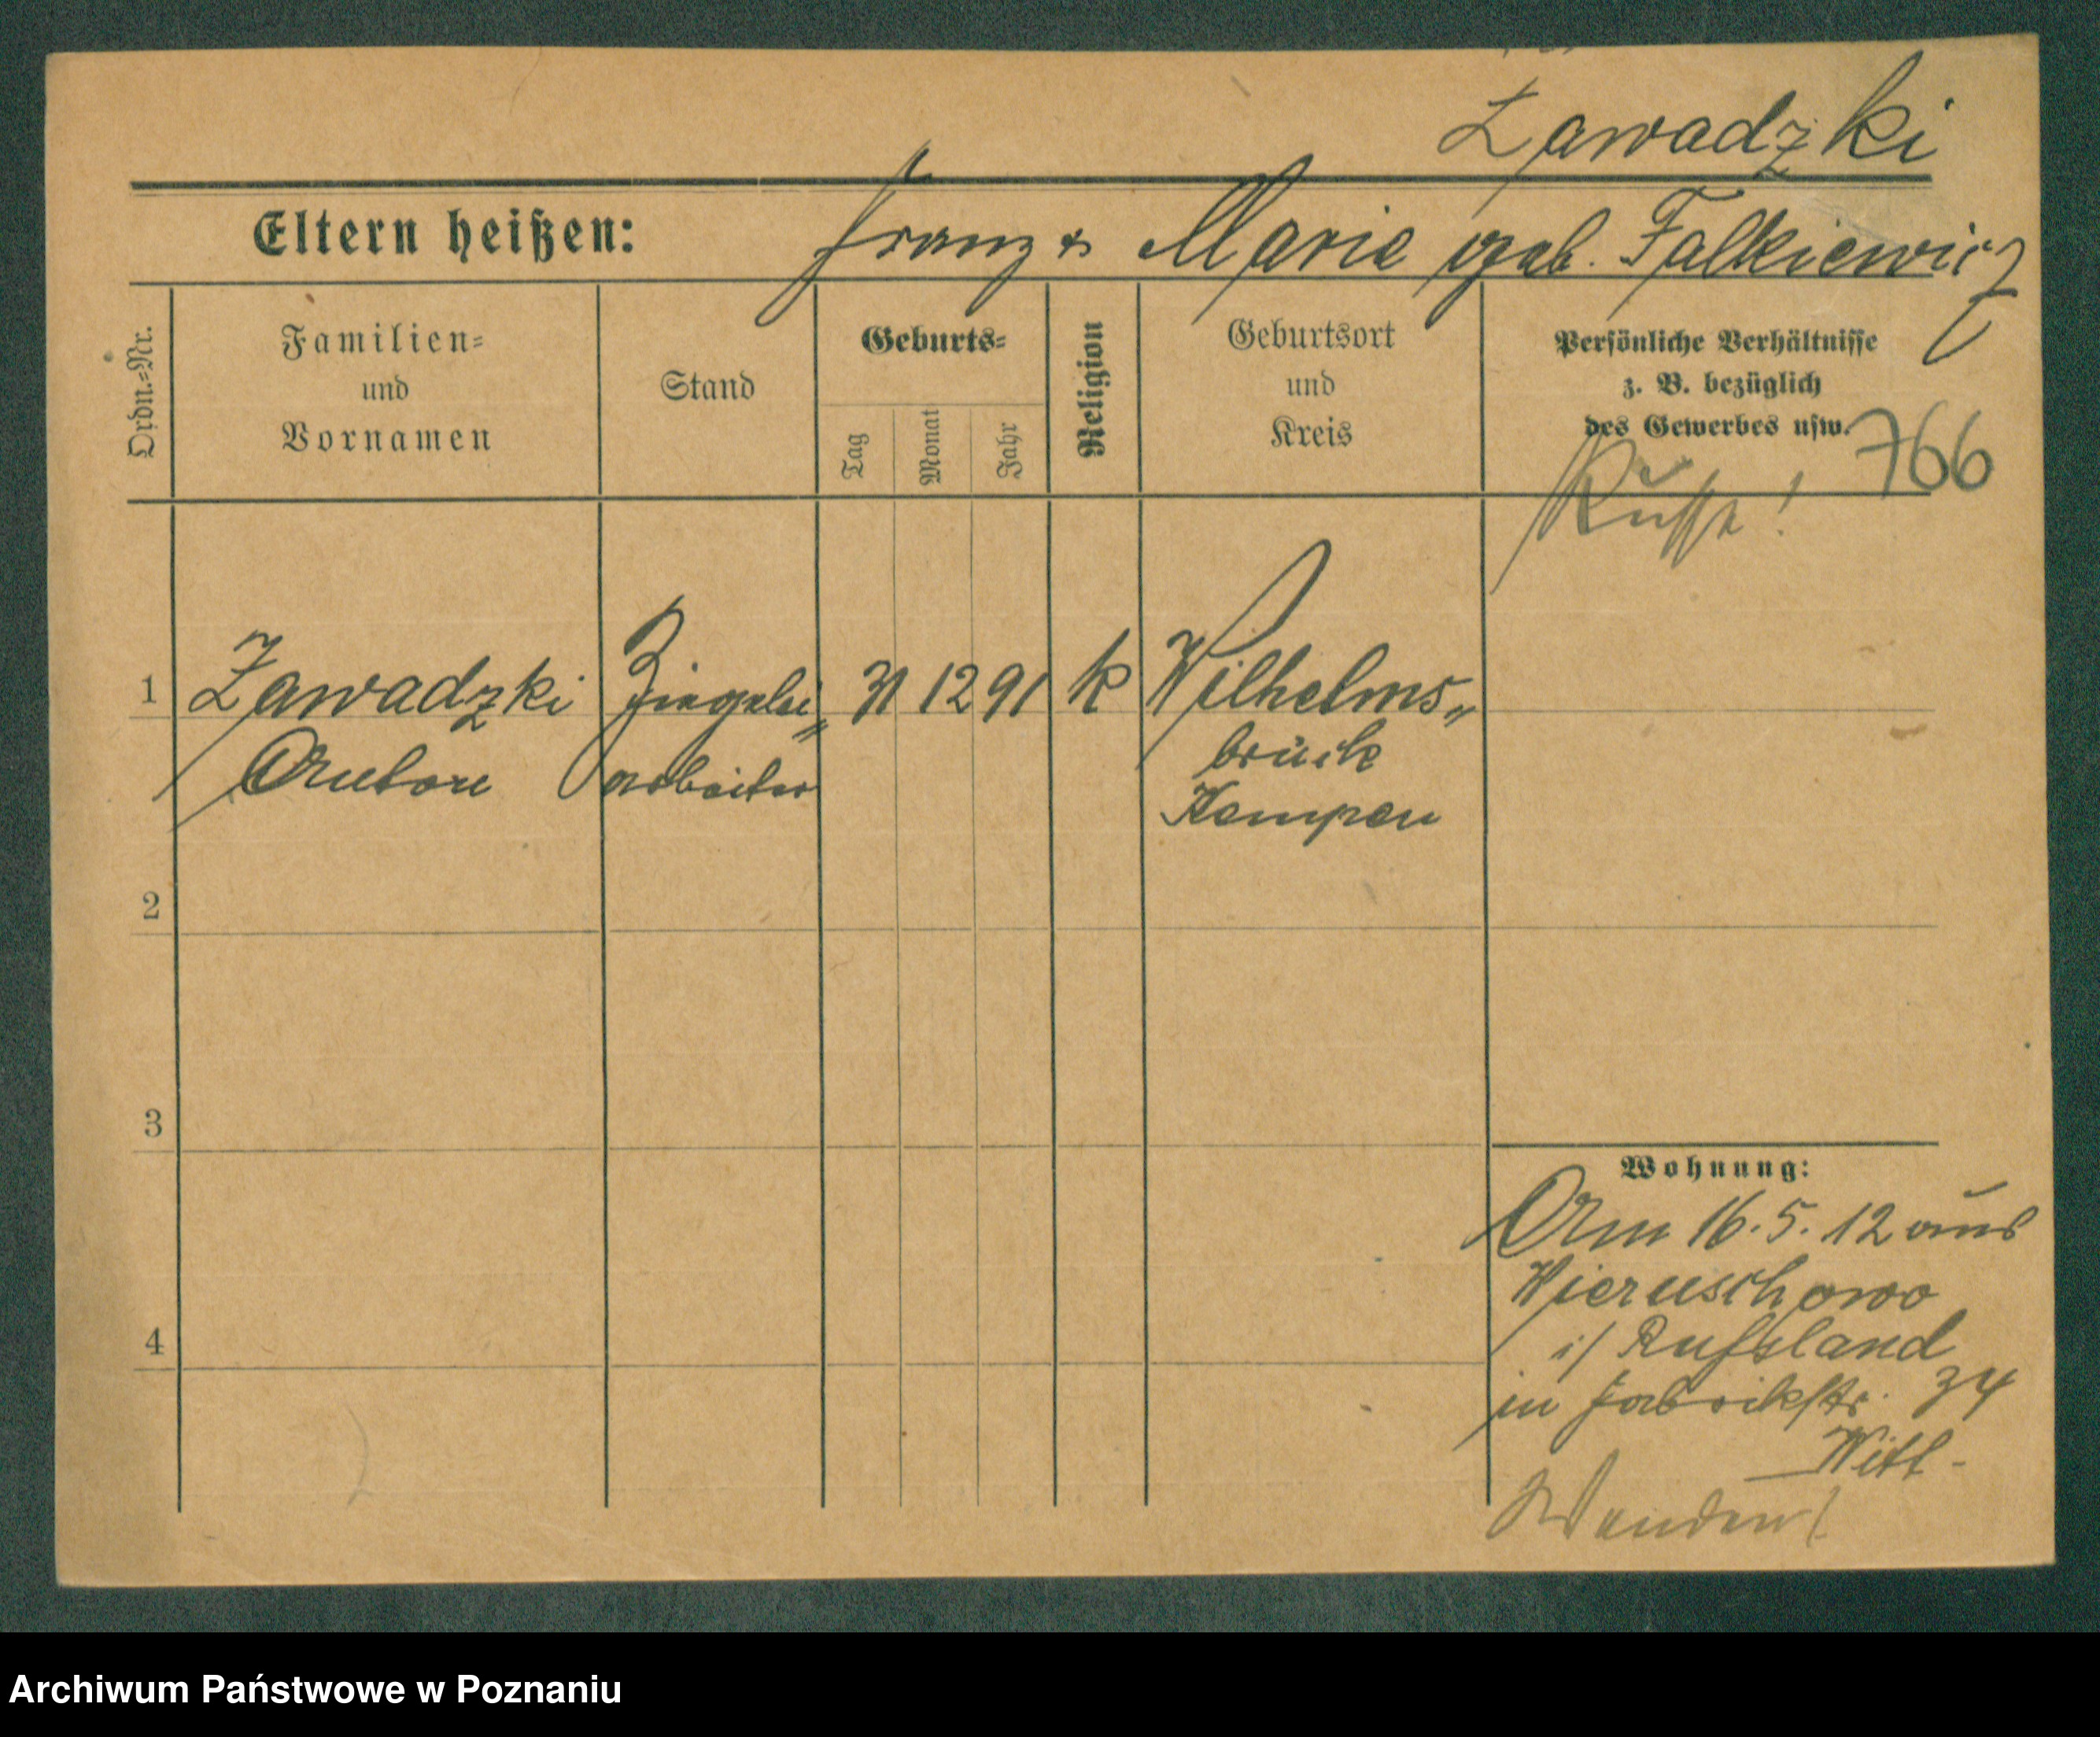 Zawadzki
Eltern heißen: Franz & Marie geb. Falkiewicz
Ordn.=Nr.
Familien=
und
Vornamen
Stand
Geburts=
Tag
Monat
Jahr
Religion
Geburtsort
und
Kreis
Persönliche Verhältnisse
z. B. bezüglich
des Gewerbes usw.
766
Russe!
1 Zawadzki Ziegelei„ 31 12 91 k Wilhelms„
Anton arbeiter brück
Kempen
2
3
4
Wohnung:
Am 16. 5. 12 aus
Wieruschowo
i/ Russland
in Fabrikstr. 34
Wenden!